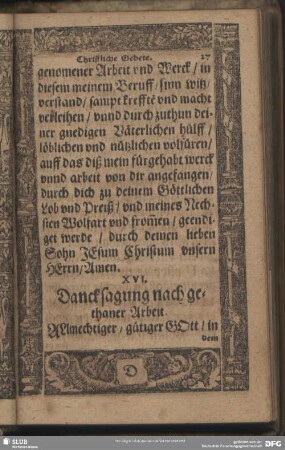 Christliche Gebete. 27
genomener Arbeit vnd Werck / in
diesem meinem Beruff / sinn witz /
verstand / sampt kreffte vnd macht
verleihen / vnnd durch zuthun dei-
ner gnedigen Väterlichen hülff /
löblichen vnd nützlichen volfüren /
auff das diß mein fürgehabt werck
vnnd arbeit von dir angefangen /
durch dich zu deinem Göttlichen
Lob vnd Preiß / vnd meines Nech-
sten Wolfart vnd fromen / geendi-
get werde / durch deinen lieben
Sohn JEsum Christum vnsern
HErrn / Amen.
XVI.
Dancksagung nach ge-
thaner Arbeit
ALlmechtiger / gütiger GOtt / in
dem
D
SLUB
DFG